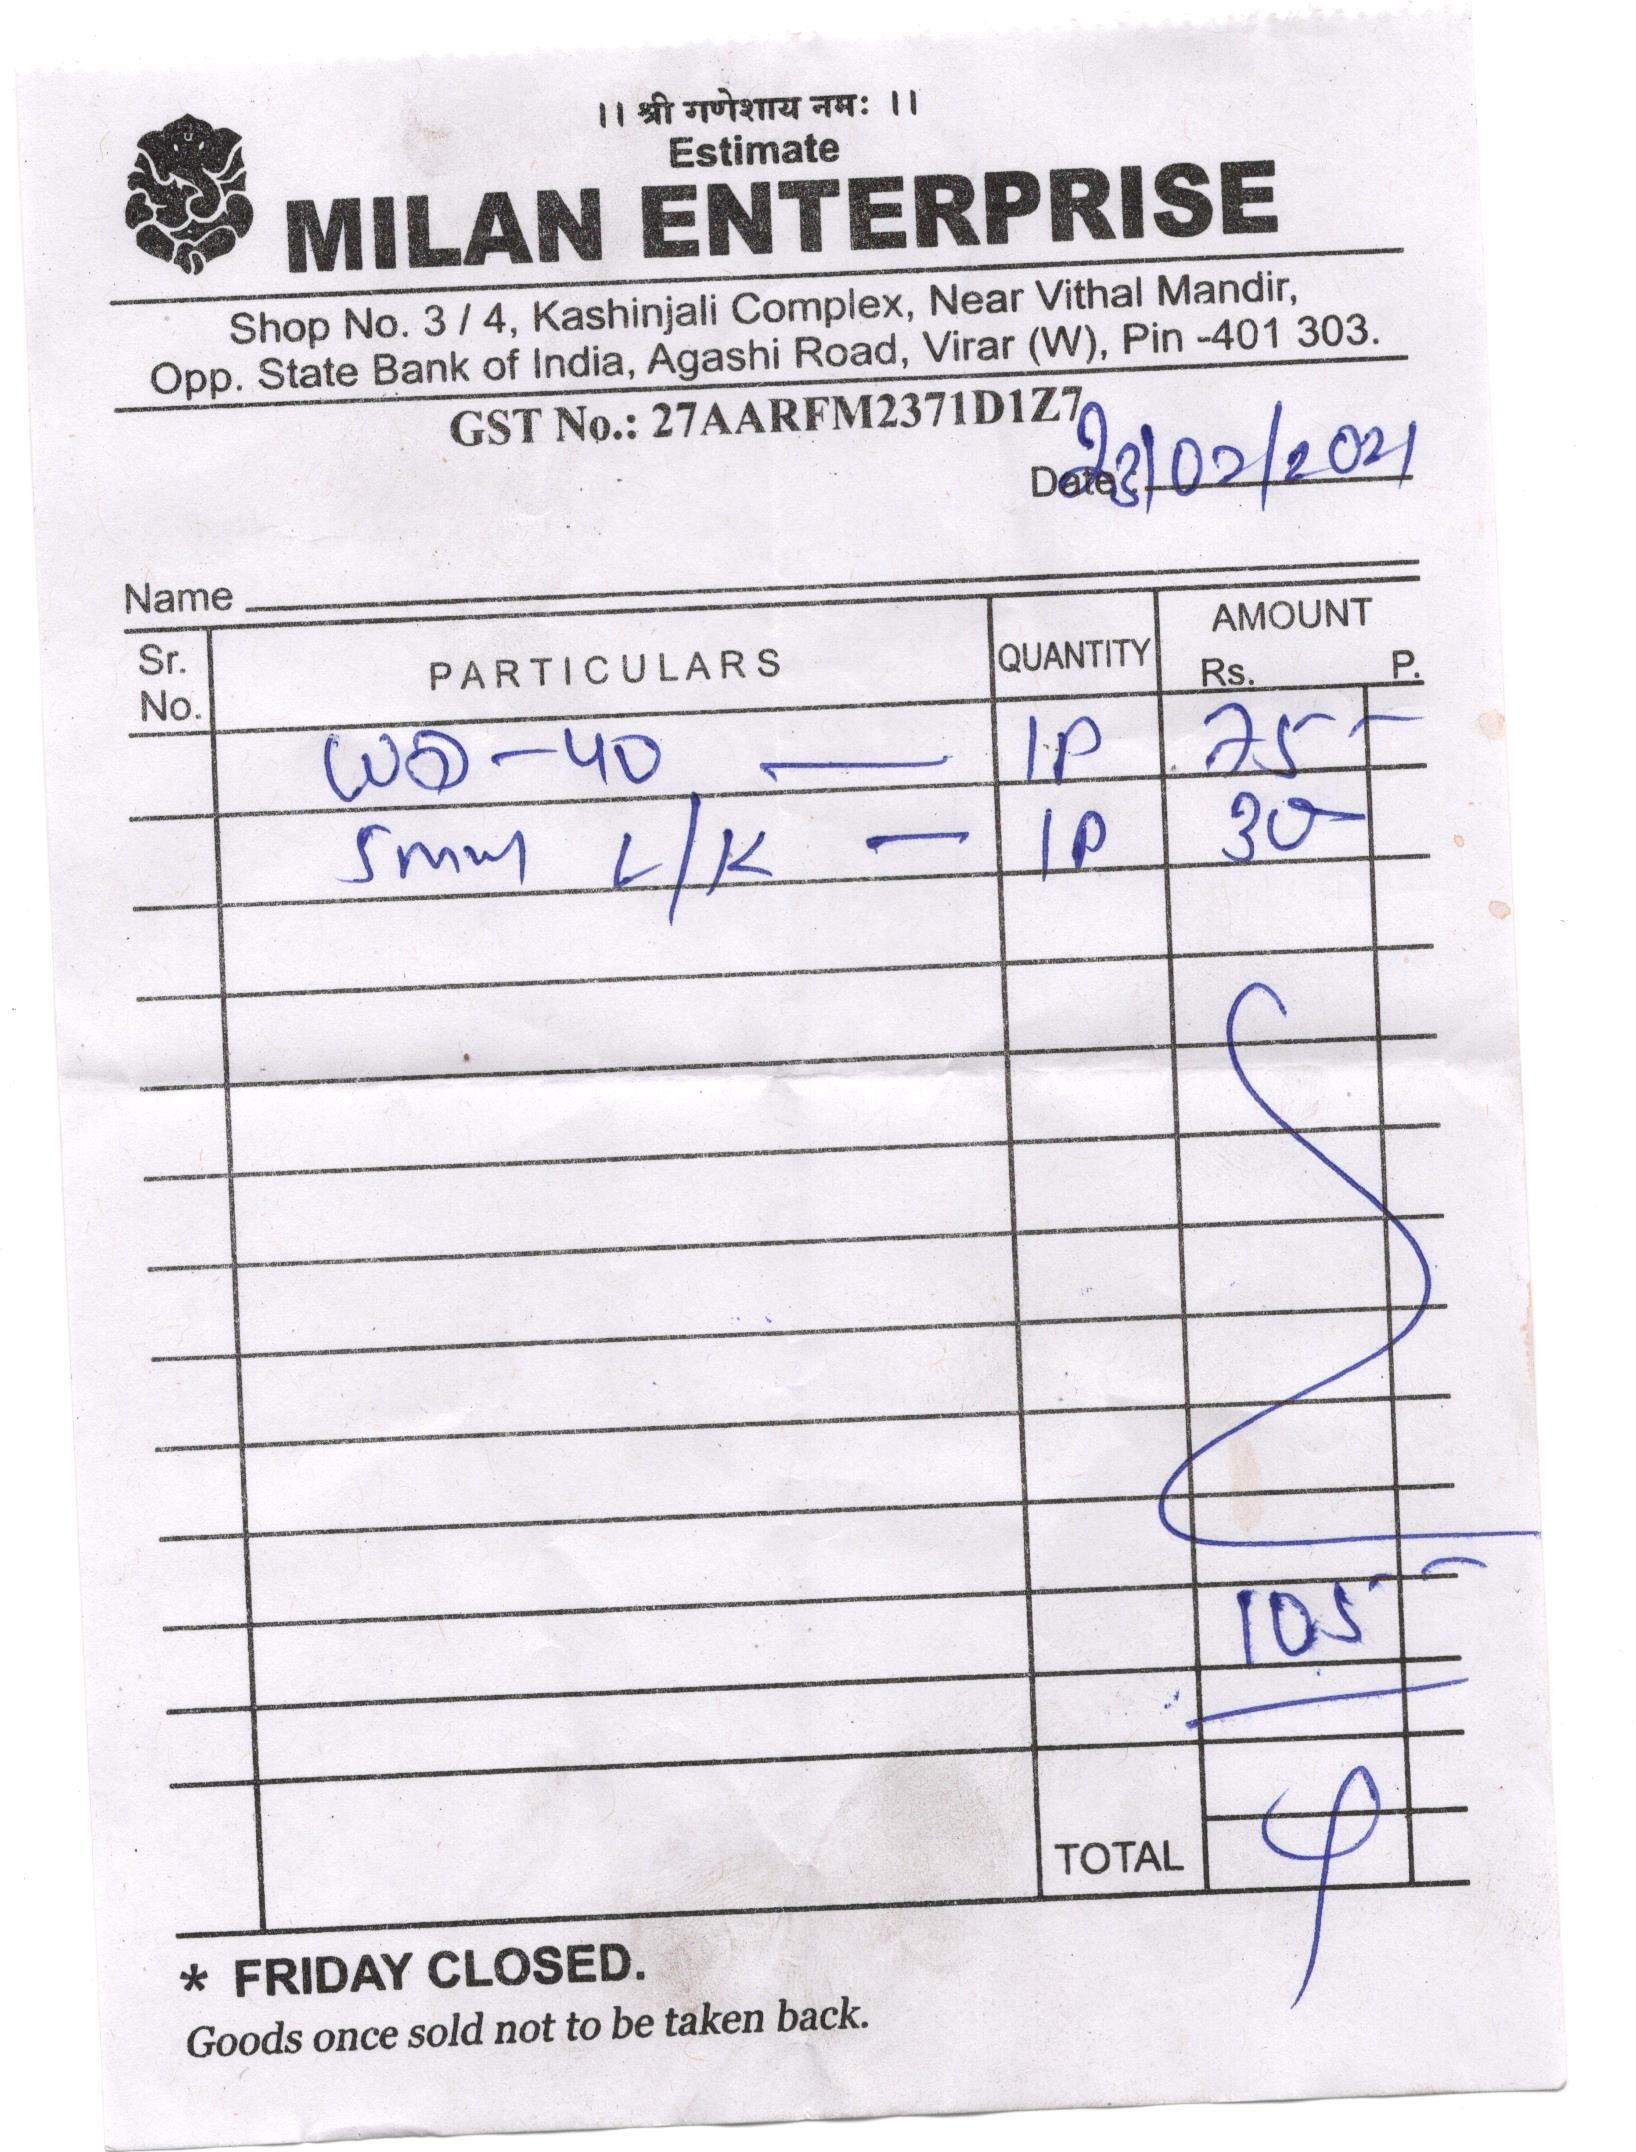 ।। श्री गणेशाय नमः ।।
Estimate
MILAN ENTERPRISE
Shop No. 3 / 4, Kashinjali Complex, Near Vithal Mandir,
Opp. State Bank of India, Agashi Road, Virar (W), Pin -401 303.
GST No.: 27AARFM2371D1Z7
Date : 23/02/2021
Name
Sr. No. PARTICULARS QUANTITY AMOUNT Rs. P.
WD-40 — 1P 75 -
5mm L/K — 1P 30 -
105 -
TOTAL
* FRIDAY CLOSED.
Goods once sold not to be taken back.